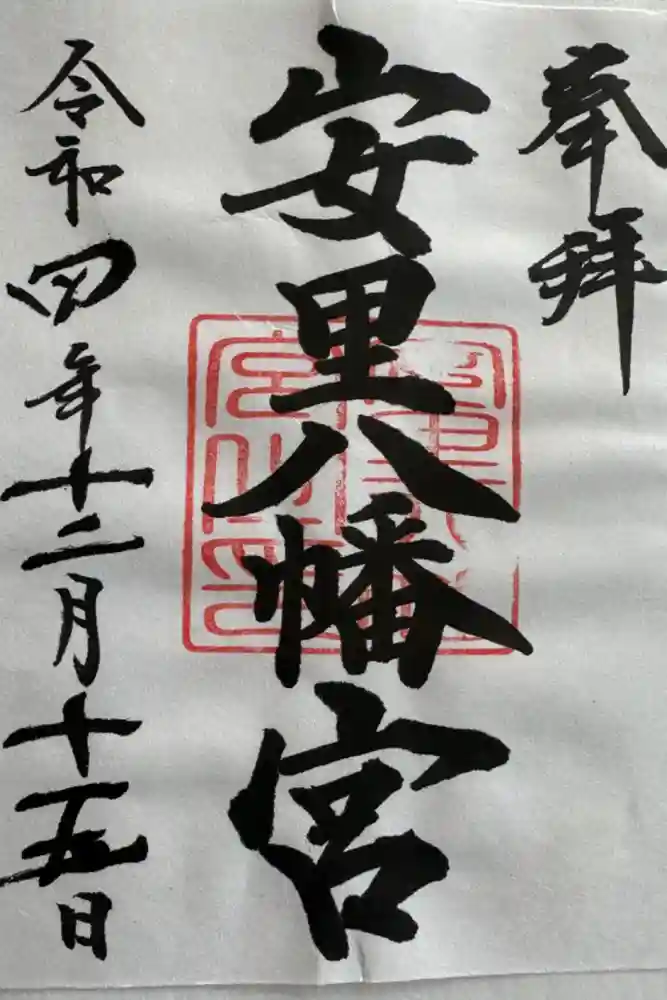 奉拝
安里八幡宮
令和四年十二月十五日